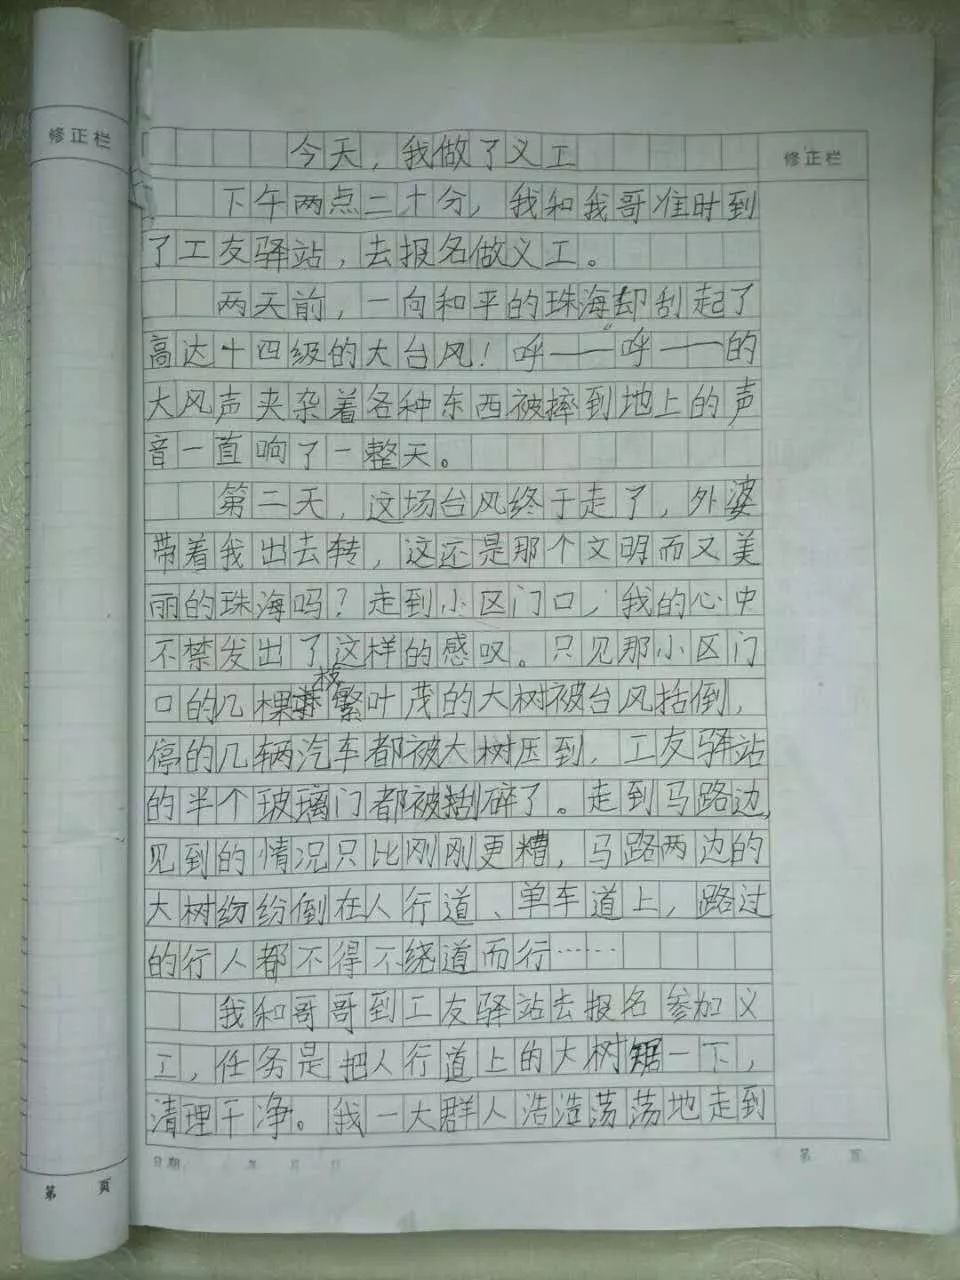 修正栏
修正栏
今天，我做了义工
下午两点二十分，我和我哥准时到
了工友驿站，去报名做义工。
两天前，一向和平的珠海却刮起了
高达十四级的大台风！呼——呼——的
大风声夹杂着各种东西被摔到地上的声
音一直响了一整天。
第二天，这场台风终于走了，外婆
带着我出去转，这还是那个文明而又美
丽的珠海吗？走到小区门口，我的心中
不禁发出了这样的感叹。只见那小区门
口的几棵枝繁叶茂的大树被台风括倒，
停的几辆汽车都被大树压到，工友驿站
的半个玻璃门都被括碎了。走到马路边，
见到的情况只比刚刚更糟，马路两边的
大树纷纷倒在人行道、单车道上，路过
的行人都不得不绕道而行……
我和哥哥到工友驿站去报名参加义
工，任务是把人行道上的大树锯一下，
清理干净。我一大群人浩浩荡荡地走到
日期 年 月 日 第 页
第 页